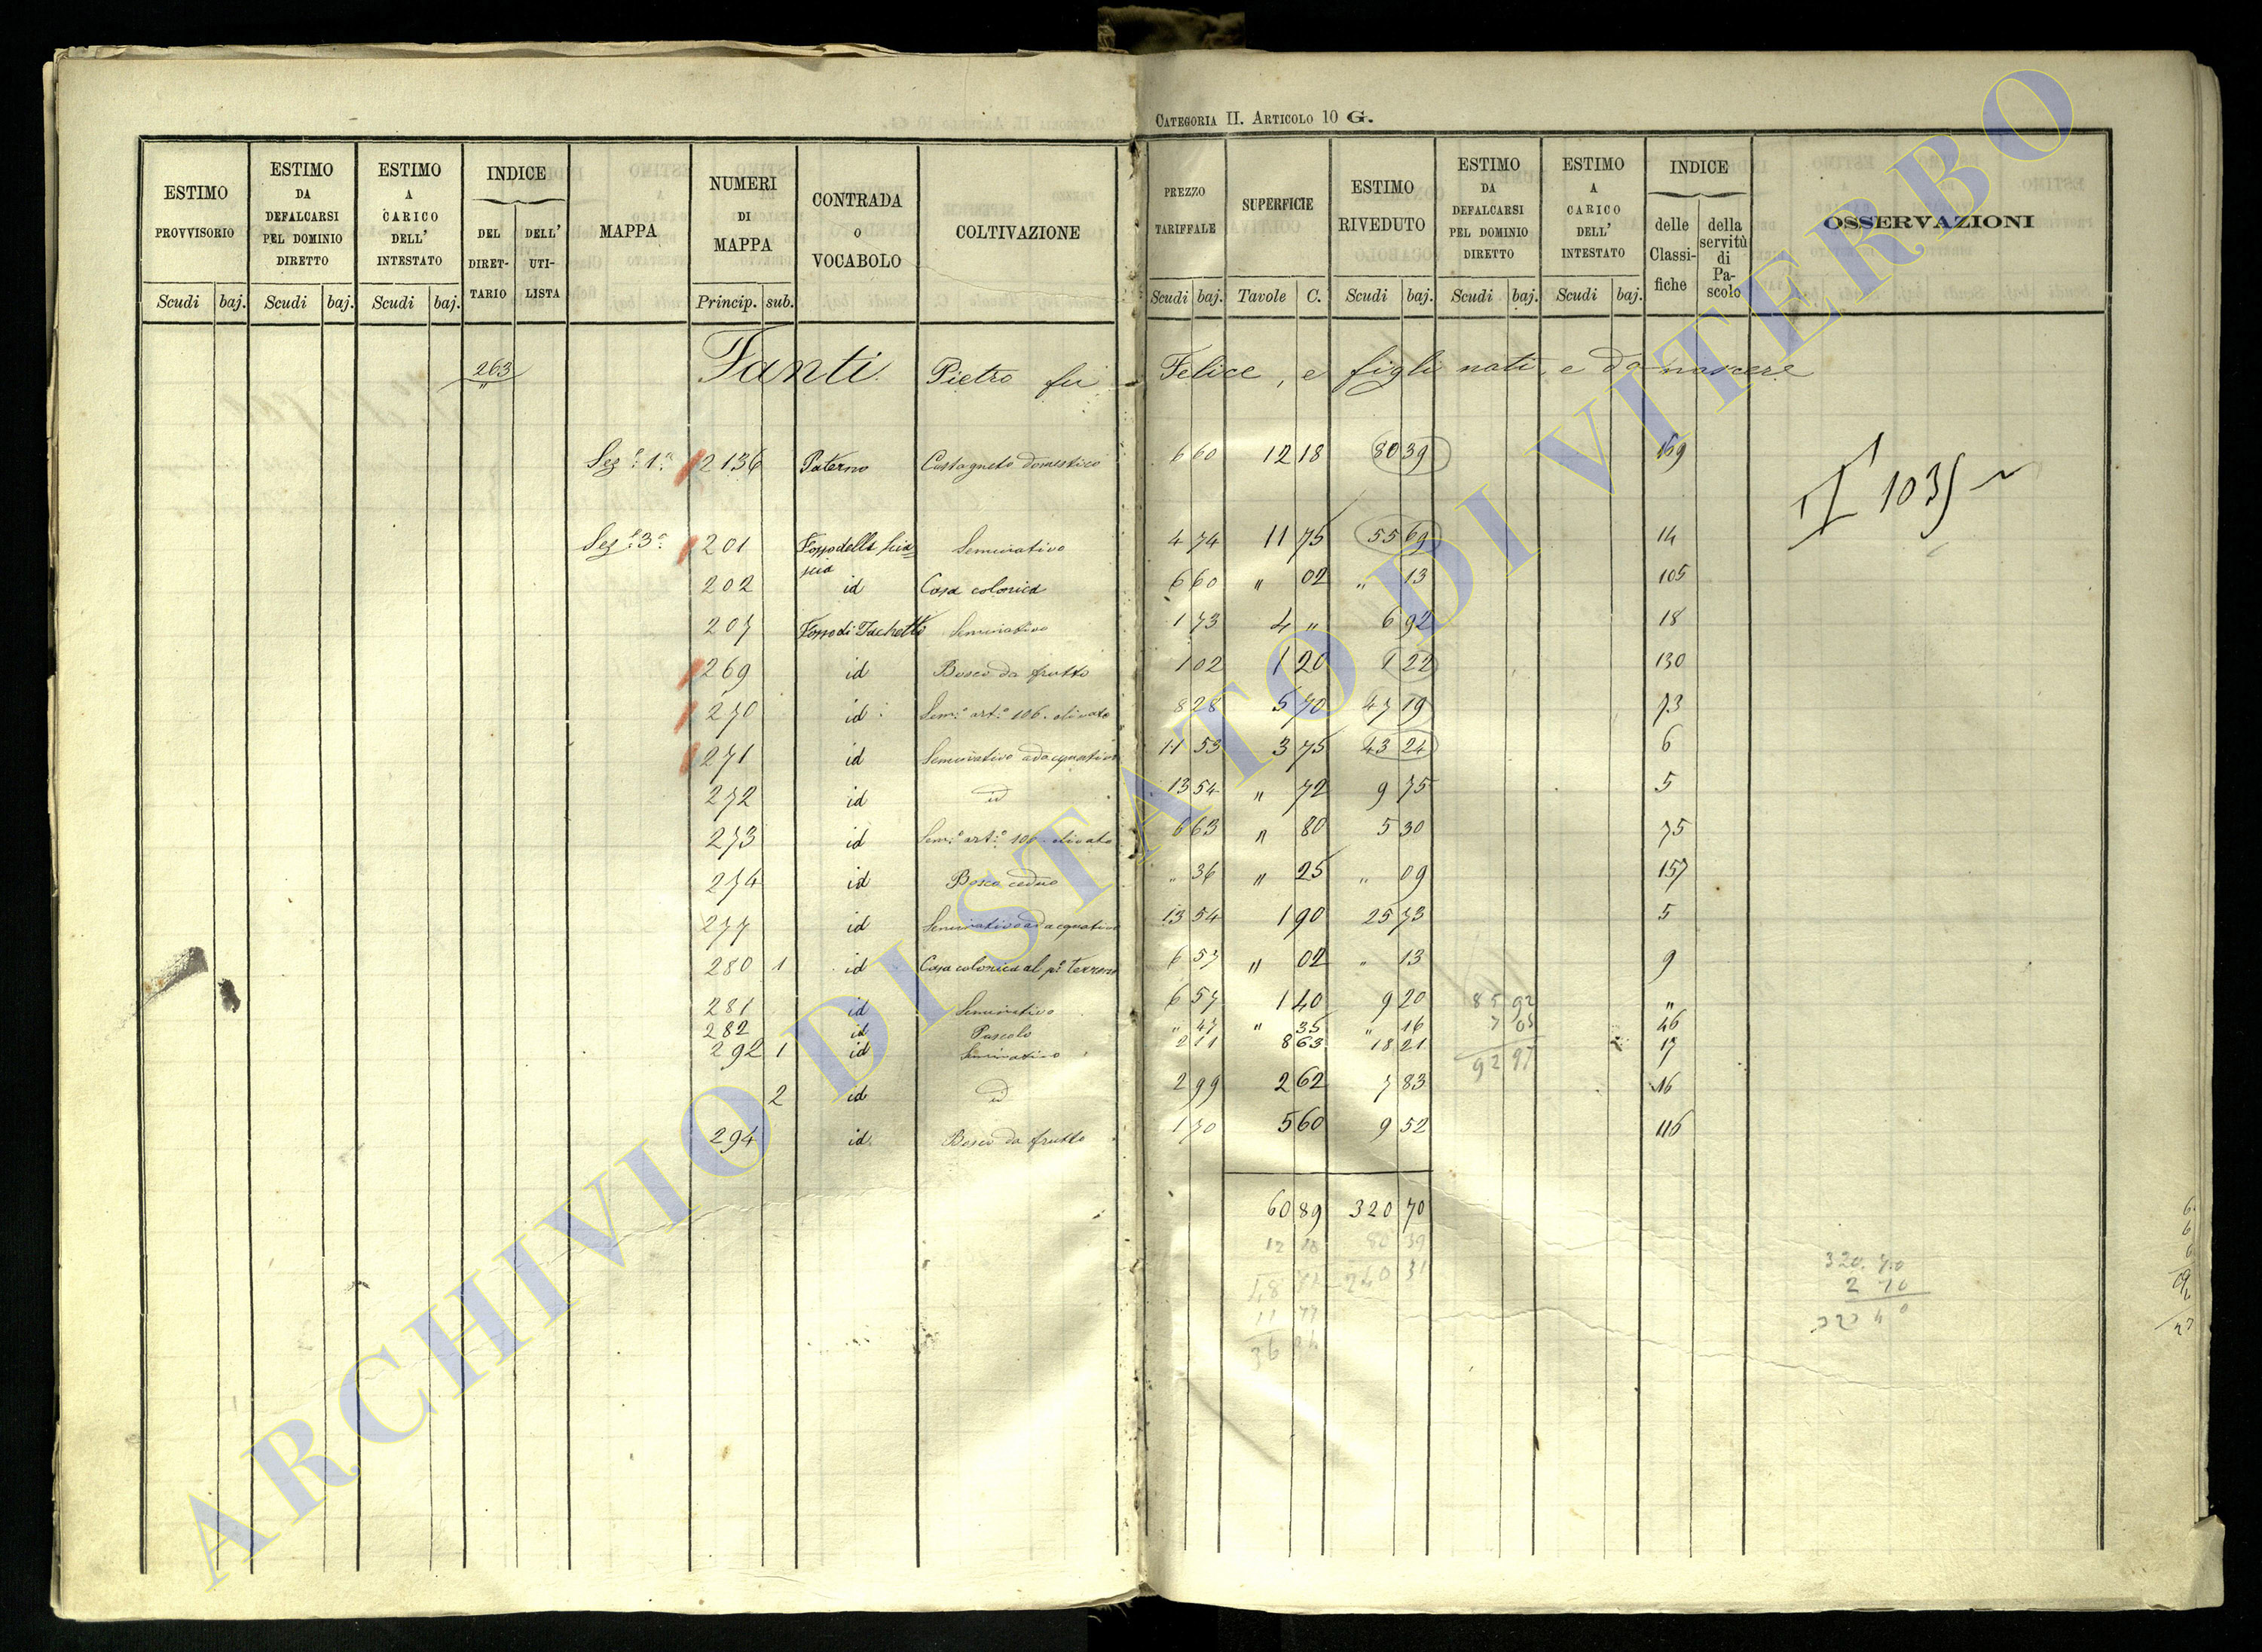 CATEGORIA II. ARTICOLO 10 G.
ESTIMO PROVVISORIO Scudi baj.
ESTIMO DA DEFALCARSI PEL DOMINIO DIRETTO Scudi baj.
ESTIMO A CARICO DELL' INTESTATO Scudi baj.
INDICE DEL DIRET- TARIO DELL' UTI- LISTA
MAPPA
NUMERI DI MAPPA Princip. sub.
CONTRADA O VOCABOLO
COLTIVAZIONE
PREZZO TARIFFALE Scudi baj.
SUPERFICIE Tavole C.
ESTIMO RIVEDUTO Scudi baj.
ESTIMO DA DEFALCARSI PEL DOMINIO DIRETTO Scudi baj.
ESTIMO A CARICO DELL' INTESTATO Scudi baj.
INDICE delle Classi- fiche della servitù di Pa- scolo
OSSERVAZIONI
263 Fanti Pietro fu Felice, e figli nati, e da nascere
Sez.e 1a 2136 Paterno Castagneto domestico 6 60 12 18 80 39 159
1035
Sez.e 3a 201 Fosso della Seminativo 4 74 11 75 55 69 14
202 id Casa colonica 6 60 " 02 " 13 105
207 Fosso di Seminativo 1 73 4 " 6 92 18
269 id Bosco da frutto 1 02 1 20 1 22 130
270 id Sem.o art.o 106 olivato 8 28 5 70 47 19 73
271 id Seminativo adacquativo 11 53 3 75 43 24 6
272 id id 13 54 " 72 9 75 5
273 id Sem.o art.o 106 olivato 6 63 " 80 5 30 75
274 id Bosco ceduo " 36 " 25 " 09 157
277 id Seminativo adacquativo 13 54 1 90 25 73 5
280 1 id Casa colonica al p.o terreno 6 57 " 02 " 13 9
281 id Seminativo 6 57 1 40 9 20 "
85 92
282 id Pascolo " 47 " 35 " 16 46
7 05
292 1 id Seminativo 2 11 8 63 18 21 17
92 97
2 id id 2 99 2 62 7 83 16
294 id Bosco da frutto 1 70 5 60 9 52 116
60 89 320 70
12 18 80 39
240 31
320.70
2 70
ARCHIVIO DI STATO DI VITERBO